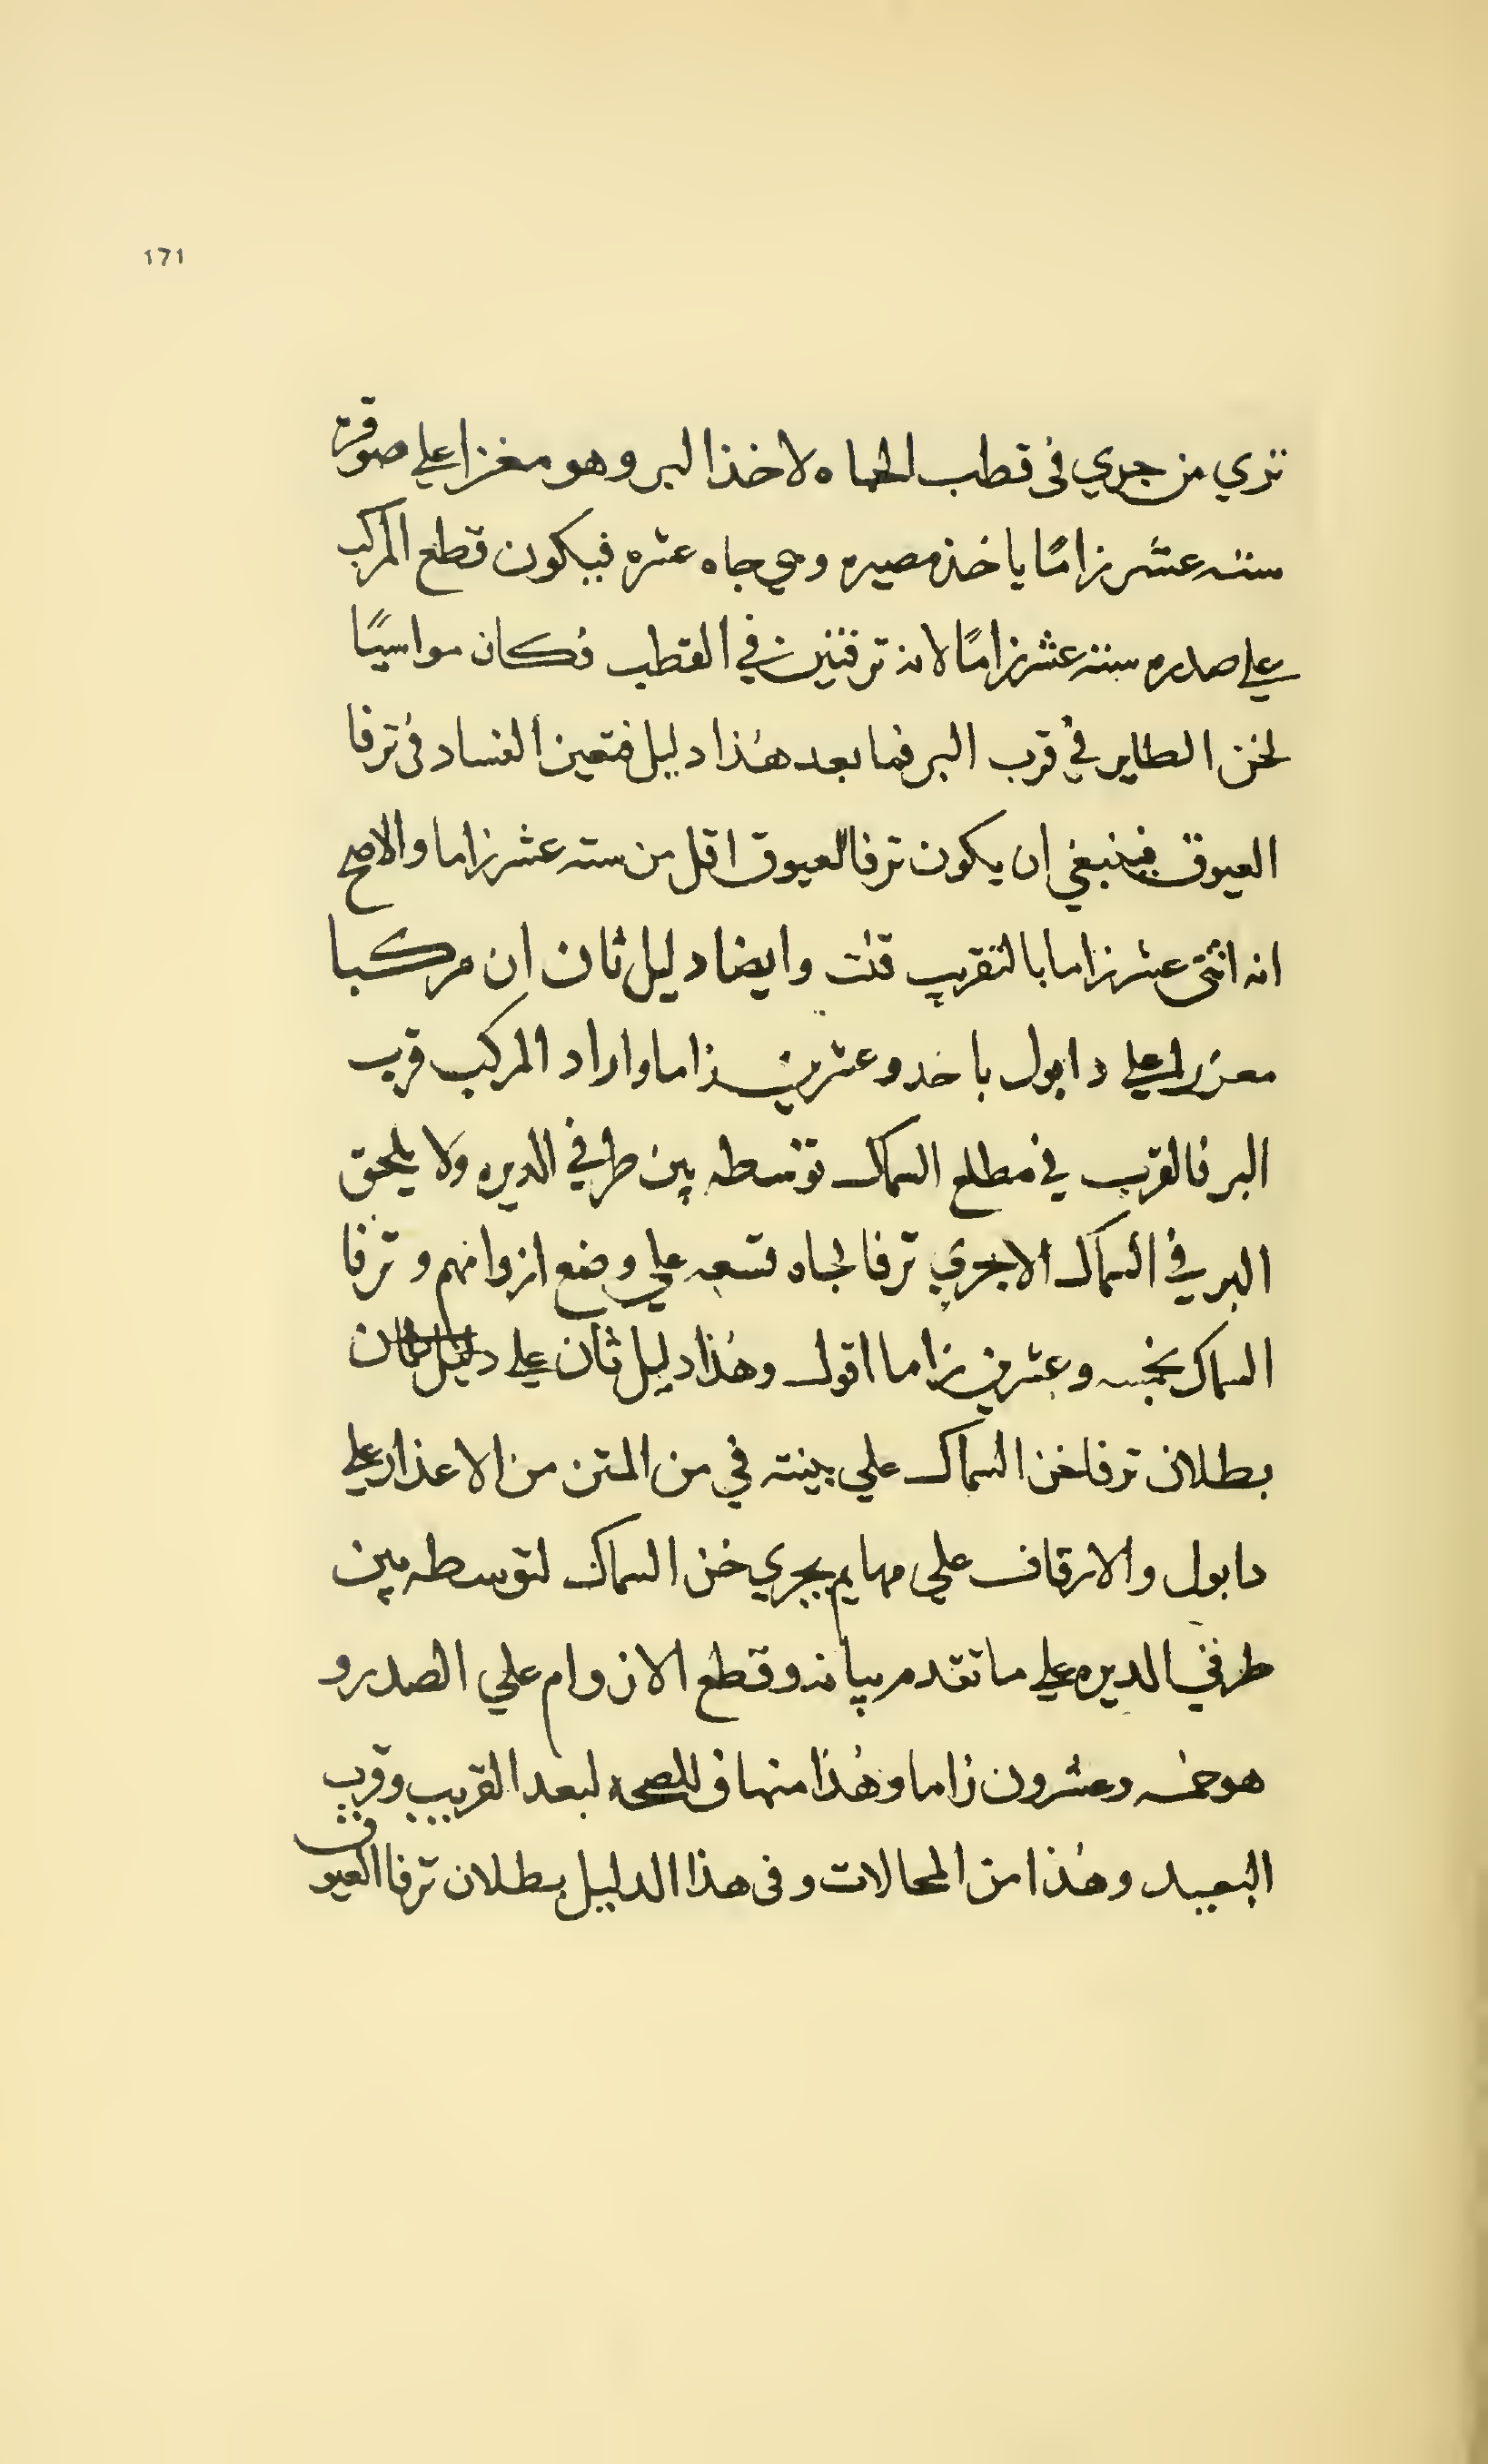 ١٦١
ترى من جري في قطب الجاه لاخذ البر وهو مغزرا علي صوقرة
سته عشر زامًا ياخذ مصيره وهي جاه عشره فيكون قطع المركب
علي صدره سته عشر زامًا لانه ترفتين في القطب فكان مواسيًا
لخن الطاير في قرب البر فما بعد هذا دليل فتعين الفساد في ترفا
العيوق فينبغي ان يكون ترفا العيوق اقل من سته عشر زاما والاصح
انه اثنى عشر زاما بالتقريب قلت وايضا دليل ثان ان مركبا
مغزرا علي دابول باحد وعشرين زاما واراد المركب قرب
البر فالقرب في مطلع السماك توسطه بين طرفي الديره ولا يلحق
البر في السماك الا بجري ترفا لجاه تسعه علي وضع ازوامهم وترفا
السماك بخمسه وعشرين زاما اقول وهذا دليل ثان علي
بطلان ترفا خن السماك علي بينته في من المتن من الاعذار علي
دابول والارقاف علي مهايم بجري خن السماك لتوسطه بين
طرفي الديره علي ما تقدم بيانه وقطع الازوام علي الصدر و
هو خمسه وعشرون زاما وهذا مناف للصحه لبعد القريب وقرب
البعيد وهذا من المحالات وفي هذا الدليل بطلان ترفا العيوق